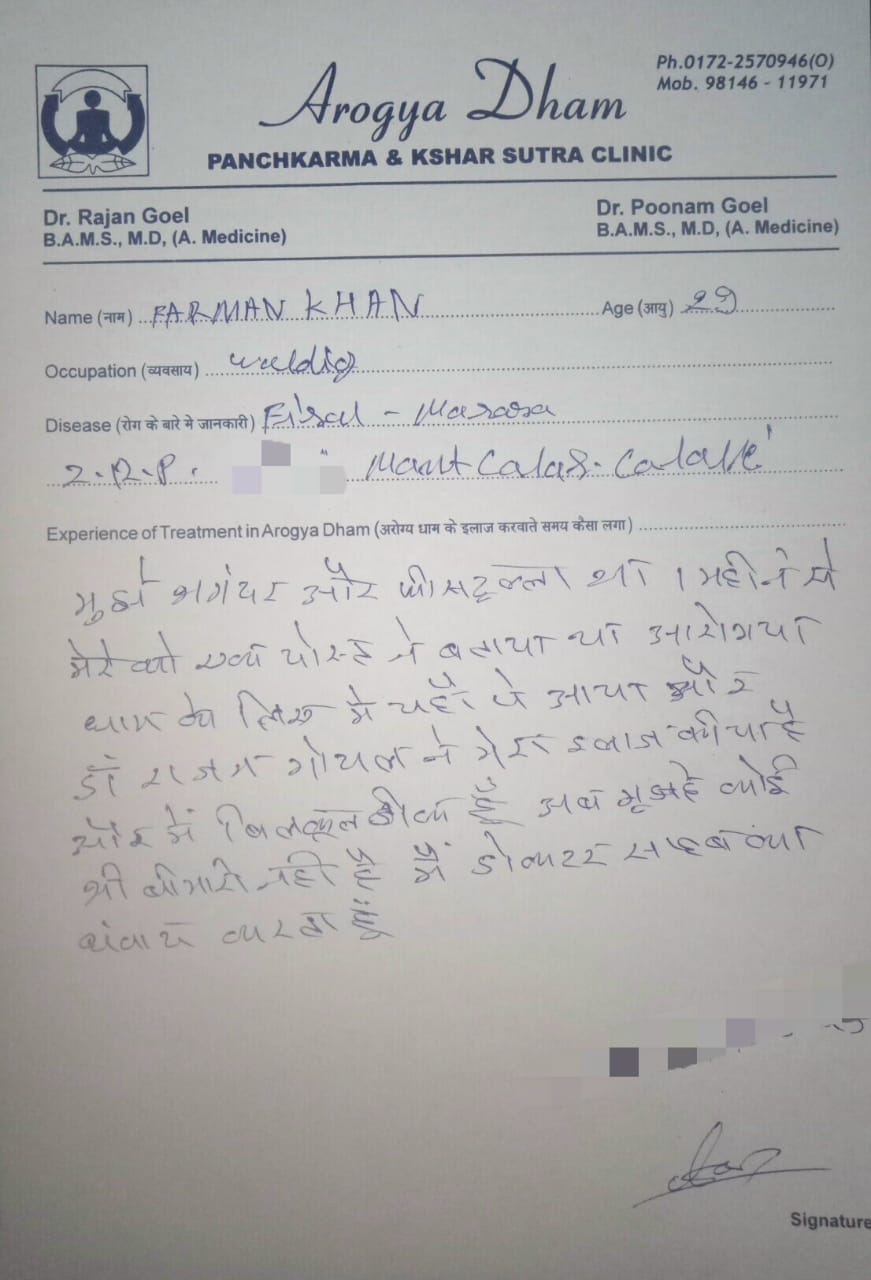 Ph.0172-2570946(O)
Mob. 98146 - 11971
Arogya Dham
PANCHKARMA & KSHAR SUTRA CLINIC
Dr. Rajan Goel
B.A.M.S., M.D, (A. Medicine)
Dr. Poonam Goel
B.A.M.S., M.D, (A. Medicine)
Name (नाम) FARMAN KHAN Age (आयु) 29
Occupation (व्यवसाय) weldig
Disease (रोग के बारे मे जानकारी)
Experience of Treatment in Arogya Dham (अरोग्य धाम के इलाज करवाते समय कैसा लगा)
मुझे भगंदर और था 1 महीने से
मेरे को एक ने बताया था आरोगया
धाम के लिए मै यहाँ पे आया और
डॉ राजन गोयल ने मेरा इलाज कीया है
और में बिलकूल ठीक हूँ अब मूझहे कोई
भी बीमारी नही है मैं डोक्टर साहब का
करता हूँ
Signature